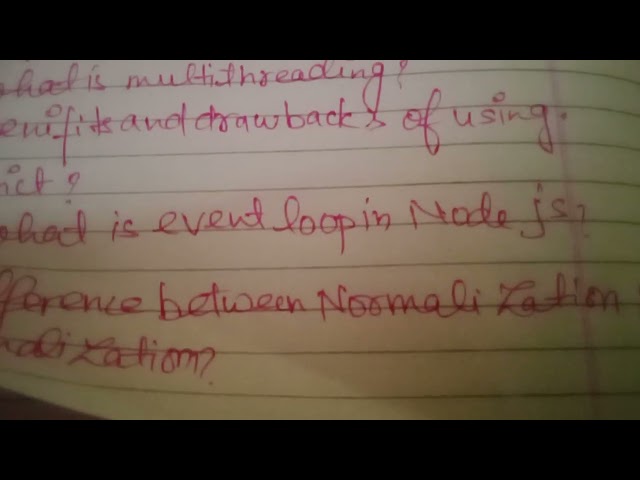 hat is multithreading?
enifits and drawbacks of using
ict?
hat is event loop in Node js?
fference between Noomalization
alization?